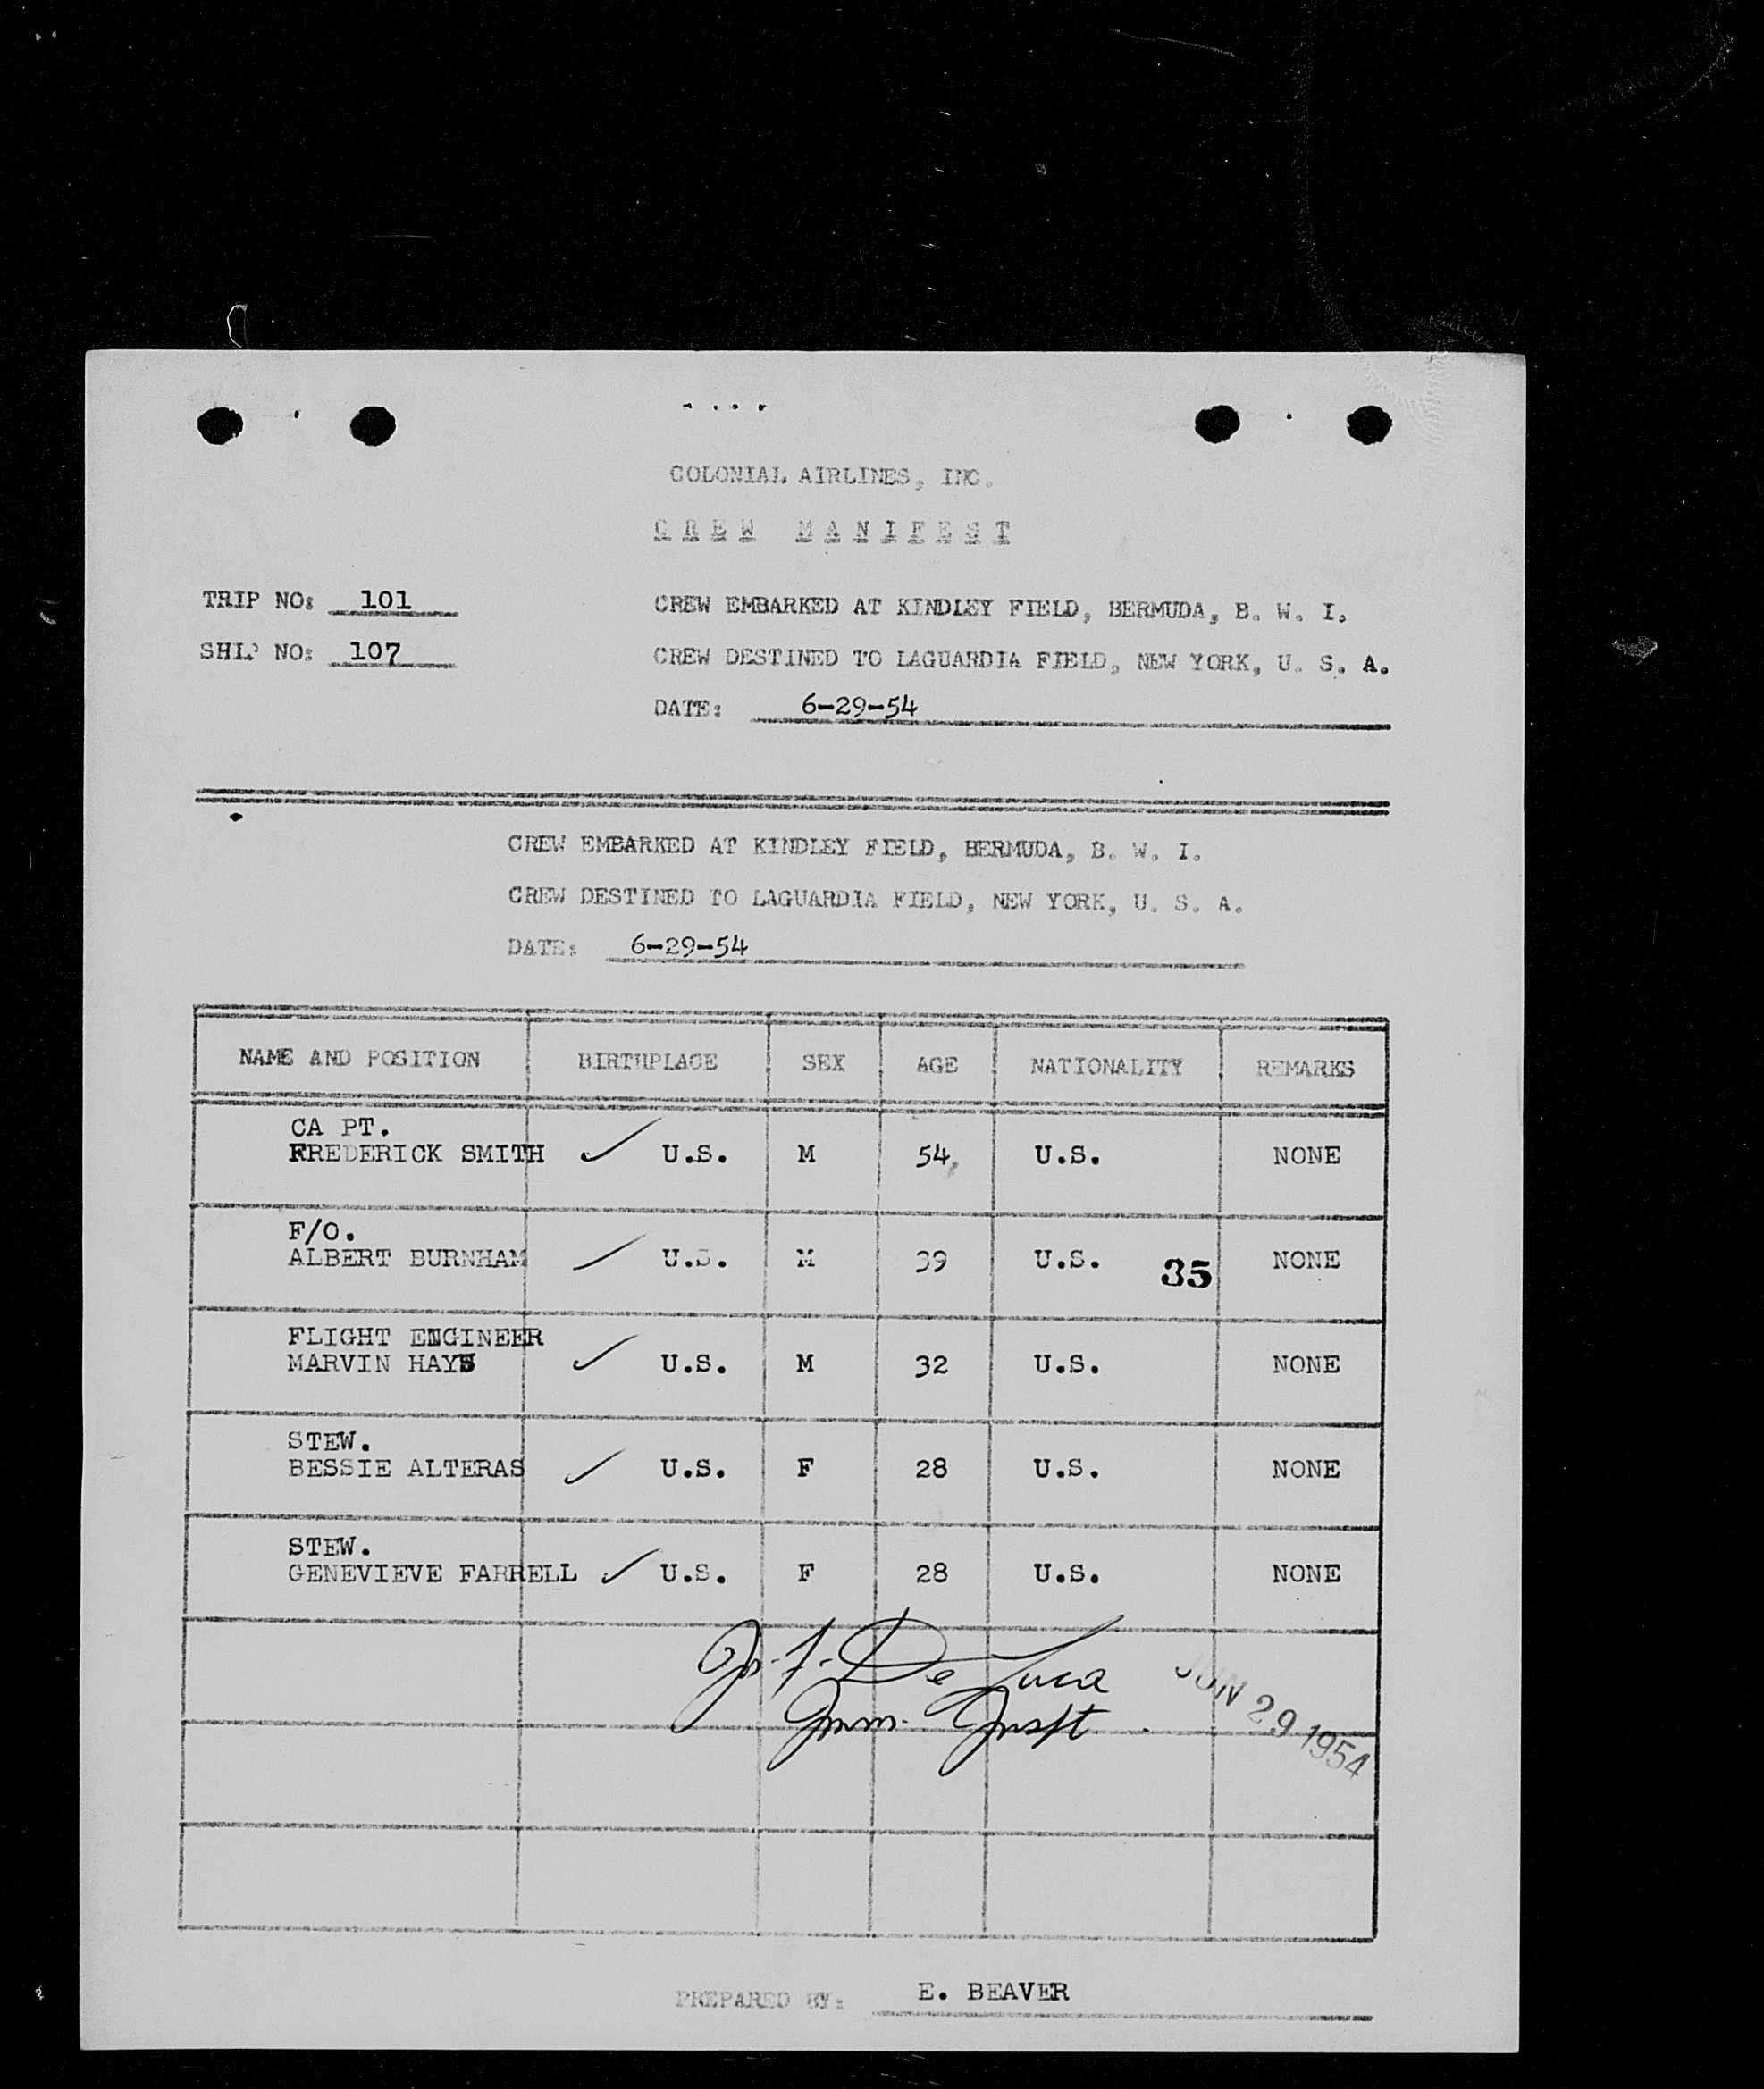 COLONIAL AIRLINES, INC.
CREW MANIFEST
TRIP NO: 101
CREW EMBARKED AT KINDLEY FIELD, BERMUDA, B. W. I.
SHIP NO: 107
CREW DESTINED TO LAGUARDIA FIELD, NEW YORK, U. S. A.
DATE: 6-29-54
CREW EMBARKED AT KINDLEY FIELD, BERMUDA, B. W. I.
CREW DESTINED TO LAGUARDIA FIELD, NEW YORK, U. S. A.
DATE: 6-29-54
NAME AND POSITION BIRTHPLACE SEX AGE NATIONALITY REMARKS
CA PT.
FREDERICK SMITH ✓ U.S. M 54 U.S. NONE
F/O.
ALBERT BURNHAM ✓ U.S. M 39 U.S. 35 NONE
FLIGHT ENGINEER
MARVIN HAYS ✓ U.S. M 32 U.S. NONE
STEW.
BESSIE ALTERAS ✓ U.S. F 28 U.S. NONE
STEW.
GENEVIEVE FARRELL ✓ U.S. F 28 U.S. NONE
De Luca
Imm. Inspt.
JUN 29 1954
PREPARED BY: E. BEAVER